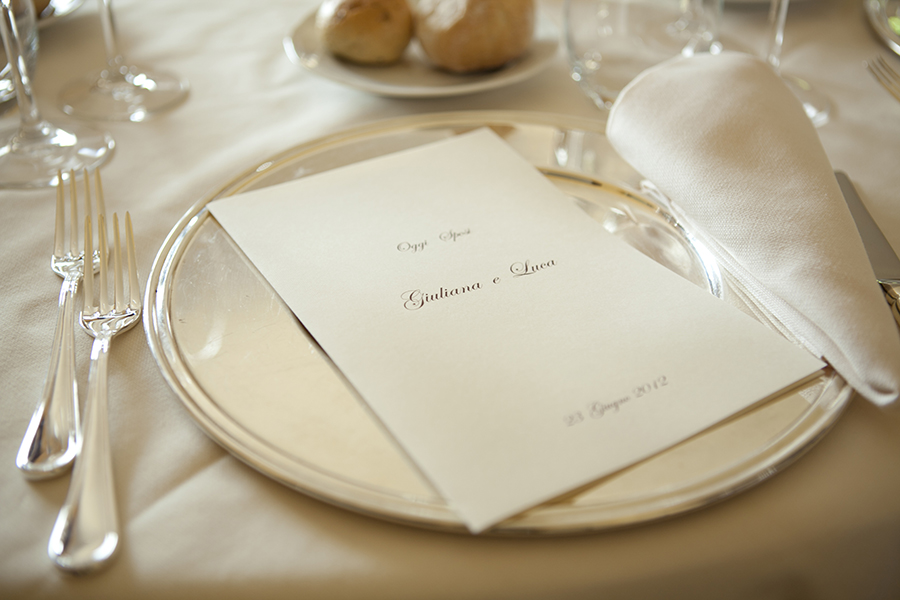 Oggi Sposi
Giuliana e Luca
23 Giugno 2012